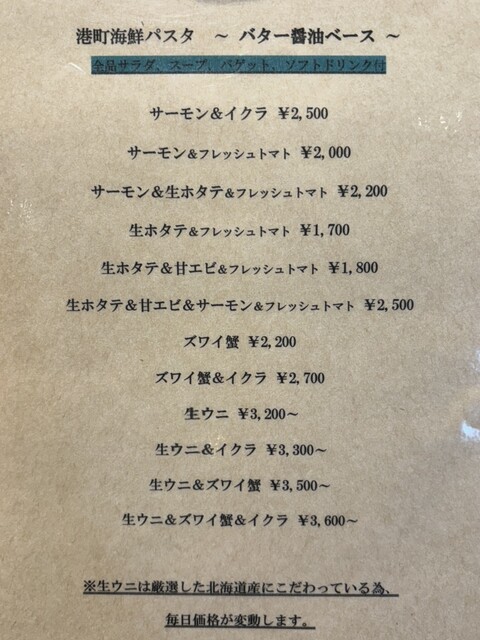 港町海鮮パスタ ～ バター醤油ベース ～
全品サラダ、スープ、バゲット、ソフトドリンク付
サーモン＆イクラ ￥2,500
サーモン＆フレッシュトマト ￥2,000
サーモン＆生ホタテ＆フレッシュトマト ￥2,200
生ホタテ＆フレッシュトマト ￥1,700
生ホタテ＆甘エビ＆フレッシュトマト ￥1,800
生ホタテ＆甘エビ＆サーモン＆フレッシュトマト ￥2,500
ズワイ蟹 ￥2,200
ズワイ蟹＆イクラ ￥2,700
生ウニ ￥3,200～
生ウニ＆イクラ ￥3,300～
生ウニ＆ズワイ蟹 ￥3,500～
生ウニ＆ズワイ蟹＆イクラ ￥3,600～
※生ウニは厳選した北海道産にこだわっている為、
毎日価格が変動します。